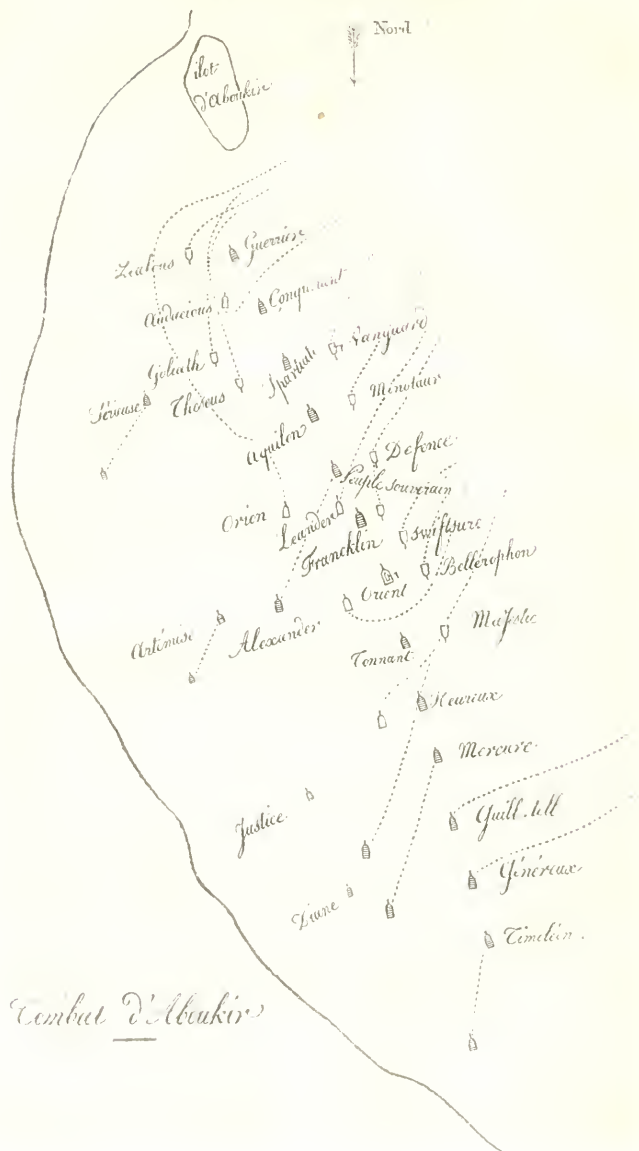 Nord
ilot
d'Aboukir
Zealous
Guerrier
Audacious
Conquérant
Goliath
Spartiate
Vanguard
Sérieuse
Theseus
Minotaur
Aquilon
Defence
Peuple souverain
Orion
Leander
Francklin
Swiftsure
Orient
Bellérophon
Artémise
Alexander
Majestic
Tonnant
Heureux
Mercure
Justice
Guill. tell
Généreux
Diane
Timoléon.
Combat d'Aboukir